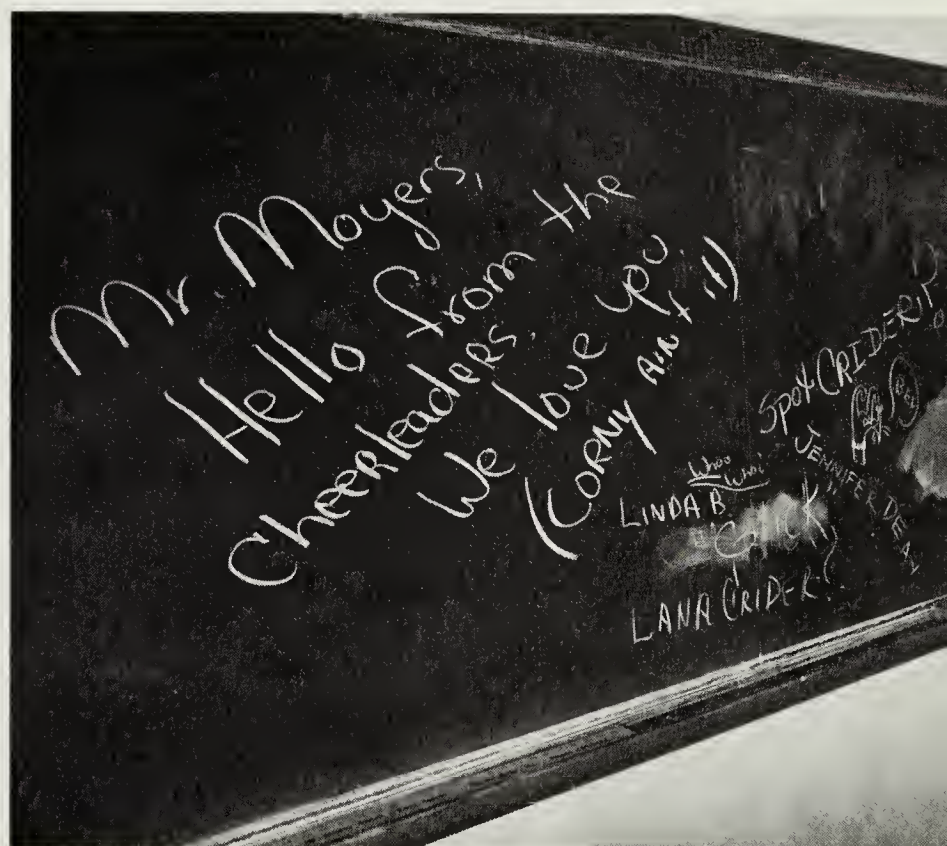 Mr. Moyers,
Hello from the
Cheerleaders.
We love you
(Corny Ain't it)
Spot CRIDER
JENNIFER DEAN
Whoo Whoo!
LINDA B.
"CHICK"
LANA CRIDER!